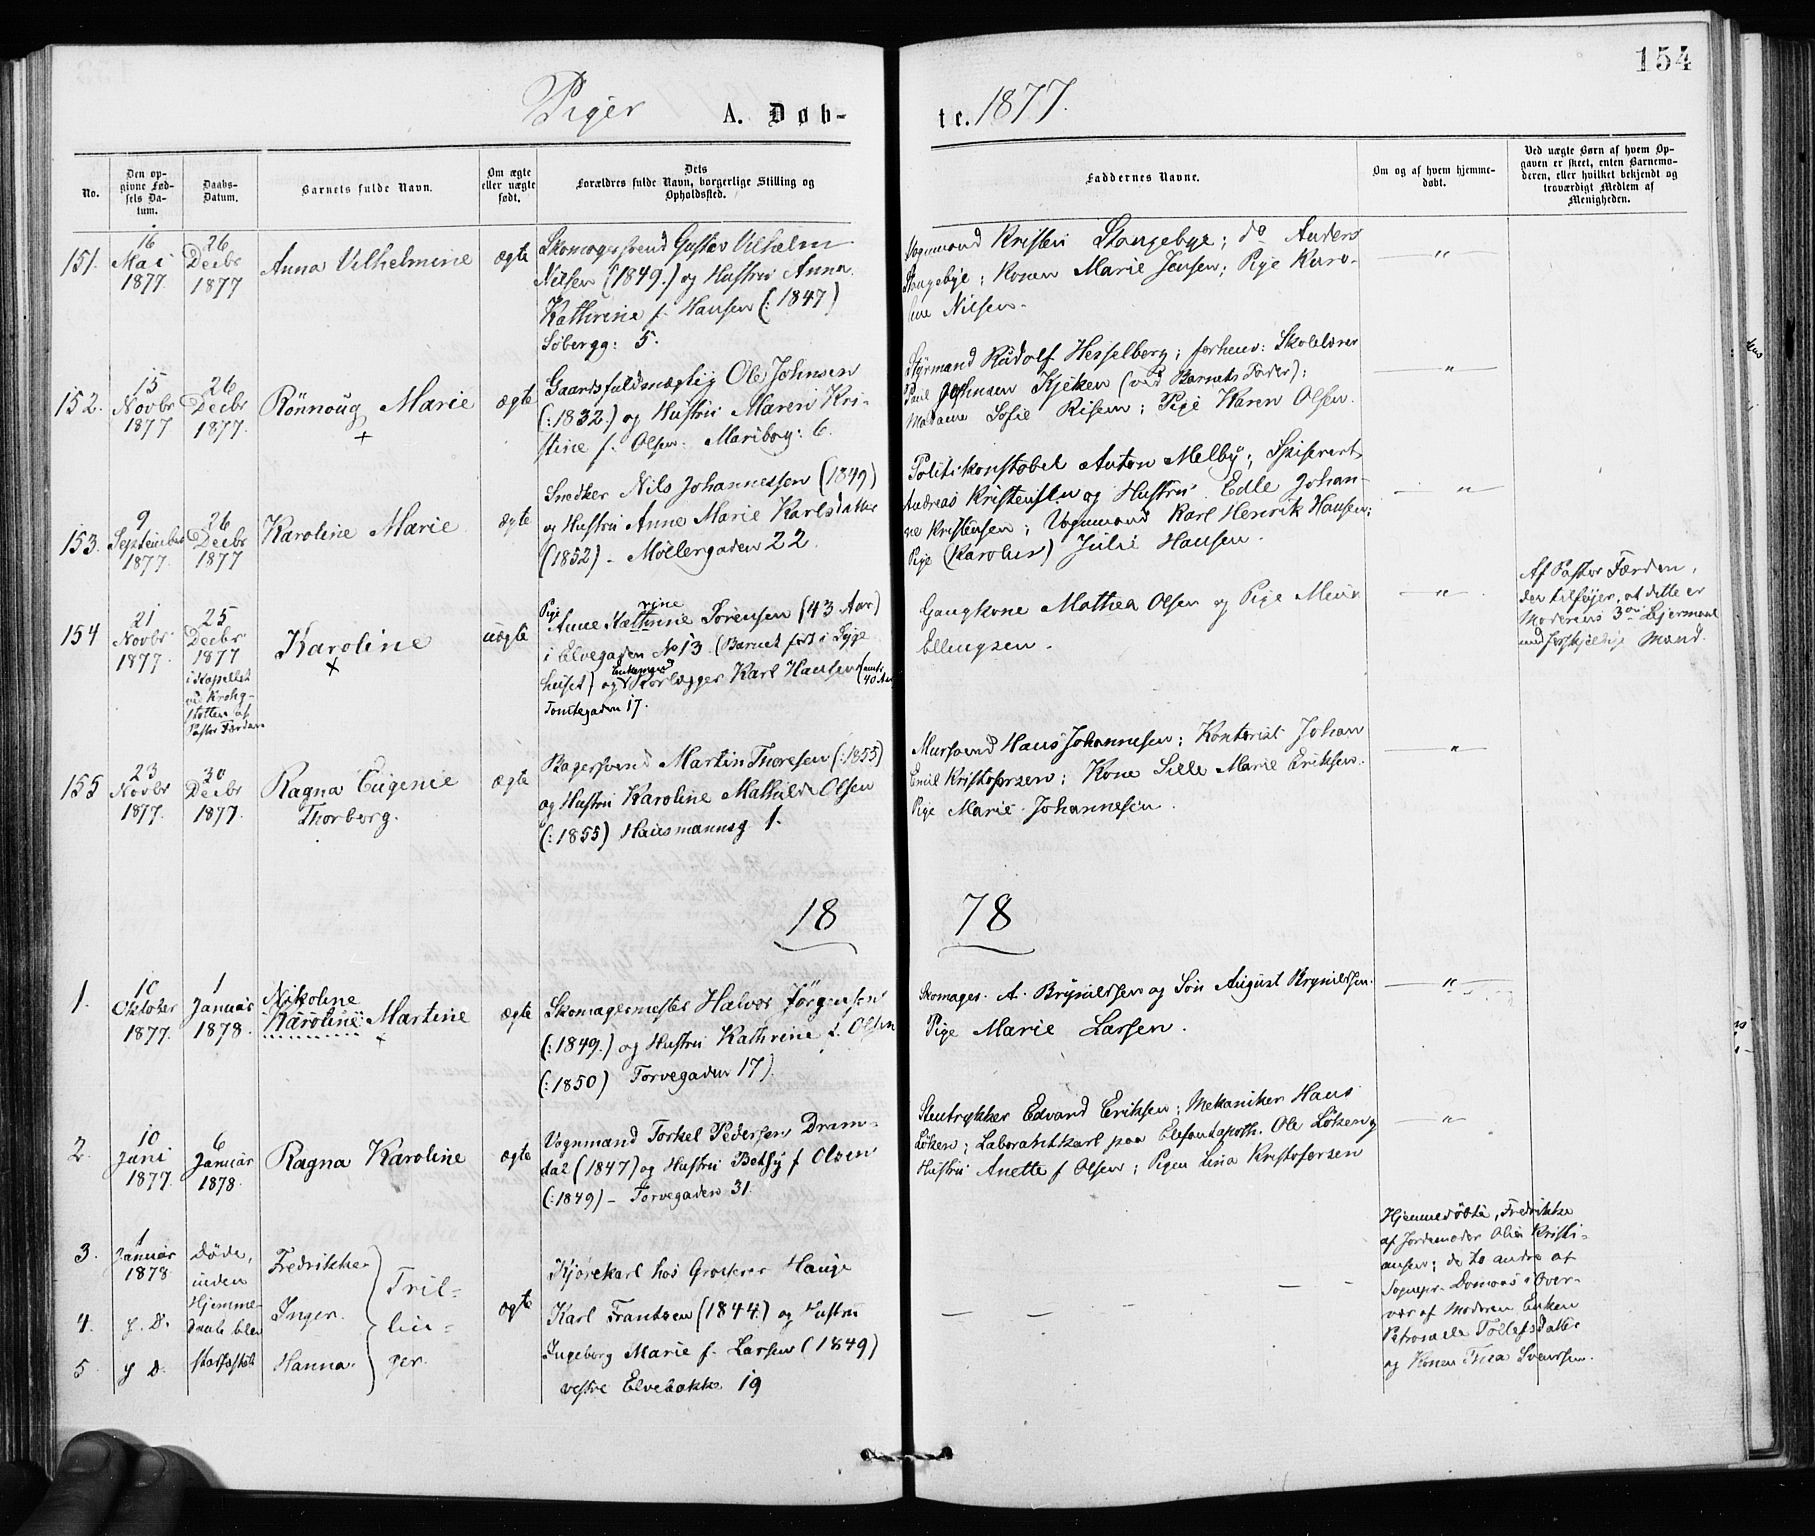 154
Piger A. Døb-
te. 1877.
No.
Den op-
givne Fød-
sels Da-
tum.
Daabs-
Datum.
Barnets fulde Navn.
Om ægte
eller uægte
født.
Dets
Forældres fulde Navn, borgerlige Stilling og
Opholdssted.
Faddernes Navne.
Om og af hvem hjemme-
døbt.
Ved uægte Børn af hvem Op-
gaven er skeet, enten Barnemo-
deren, eller hvilket bekjendt og
troværdigt Medlem af
Menigheden.
151.
16
Mai
1877
26
Decbr
1877
Anna Vilhelmine
ægte
Skomagersvend Gustav Vilhelm
Nilsen (1849.) og Hustru Anna
Kathrine f. Hansen (: 1847)
Søbergg: 5.
Vognmand Kristen Stangebye; do Anders
Stangebye; Konen Marie Jensen; Pige Karo-
line Nilsen.
— " —
152.
15
Novbr
1877
26
Decbr
1877.
Rönnoug Marie
+
ægte
Gaardsfuldmægtig Ole Johnsen
(: 1832.) og Hustru Maren Kri-
stine f. Olsen. Mariborg: 6.
Styrmand Rudolf Hesselberg; forhenv: Skolelærer
Paul Johnsen Kjeken (ved Barnets Fader);
Madame Sofie Risem; Pige Karen Olsen.
— " —
153.
9
September
1877.
26
Decbr
1877
Karoline Marie
ægte
Snedker Nils Johannessen (1849)
og Hustru Anne Marie Karlsdatter
(1852) - Møllergaden 22.
Politikonstabel Anton Melby; Spisevert
Andreas Kristensen og Hustru Edle Johan-
ne Kristensen; Vognmand Karl Henrik Hansen;
Pige (Karolus) Julie Hansen.
— " —
154
21
Novbr
1877.
25
Decbr
1877
i Kapellet
ved Krohg-
støtten af
Pastor Færden
Karoline
+
uægte
Pige Anne Kathrine Sørensen (43 Aar)
i Elvegaden No 13 (Barnet født i Syge
huset) og Enkemand Rorlægger Karl Hansen (omtr.
40 Aar
Tomtegaden 17.
Gangkone Mathea Olsen og Pige
Ellingsen.
— " —
Af Pastor Færden,
der tilføjer, at dette er
Moderens 3die Lejermaal
med forskjellig Mand.
155
23
Novbr
1877.
30
Decbr
1877.
Ragna Eugenie
Thorborg.
ægte
Bagersvend Martin Thoresen (: 1855)
og Hustru Karoline Mathilde Olsen
(: 1855) Hausmannsg 1.
Mursvend Hans Johannesen; Kontorist Johan
Emil Kristofersen; Kone Sille Marie Eriksen.
Pige Marie Johannesen.
— " —
18 78
1.
10
Oktober
1877.
1
Januar
1878.
Nikoline
Karoline Martine
+
ægte
Skomagermester Halvor Jørgensen
(: 1849.) og Hustru Kathrine f. Olsen
(: 1850) Torvegaden 17).
Skomager A. Brynildsen og Søn August Brynildsen.
Pige Marie Larsen.
— " —
2.
10
Juni
1877
6
Januar
1878.
Ragna Karoline
ægte
Vognmand Torkel Pedersen Dram-
dal (1847) og Hustru Betsy f Olsen
(: 1849) - Torvegaden 31.
Stentrykker Edvard Eriksen; Mekaniker Hans
Løken; Laboratkarl paa Elefantapoth. Ole Løken og
Hustru Anette f Olsen; Pigen Lina Kristofersen
— " —
3.
1
Januar
1878
Døde,
inden
Hjemme-
daab blev
stadfæstet
Fredrikke
4.
s. D.
Inger.
5.
s D.
Hanna.
Tril-
lin-
ger.
ægte
Kjørekarl hos Grosserer Hauge
Karl Frantsen (1844.) og Hustru
Ingeborg Marie f. Larsen (1849)
vestre Elvebakke 19
— — — — —
Hjemmedøbte, Fredrikke
af Jordemoder Olea Kristi-
ansen; de to andre af
Sognepr. Domaas i Over-
vær af Moderen Enken
Petronelle Tollefsdatter
og Konen Thea Svensen.